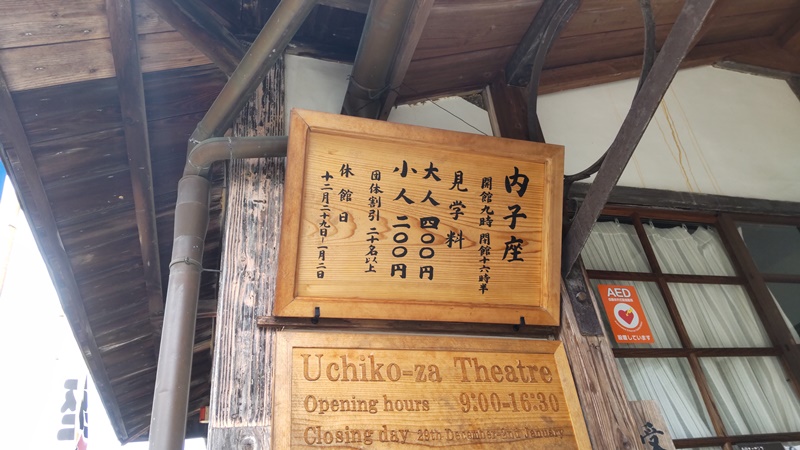 内子座
開館九時 閉館十六時半
見学料
大人 四〇〇円
小人 二〇〇円
団体割引 二十名以上
休館日
十二月二十九日〜一月二日
Uchiko-za Theatre
Opening hours 9:00-16:30
Closing day 29th December-2nd January
AED
受